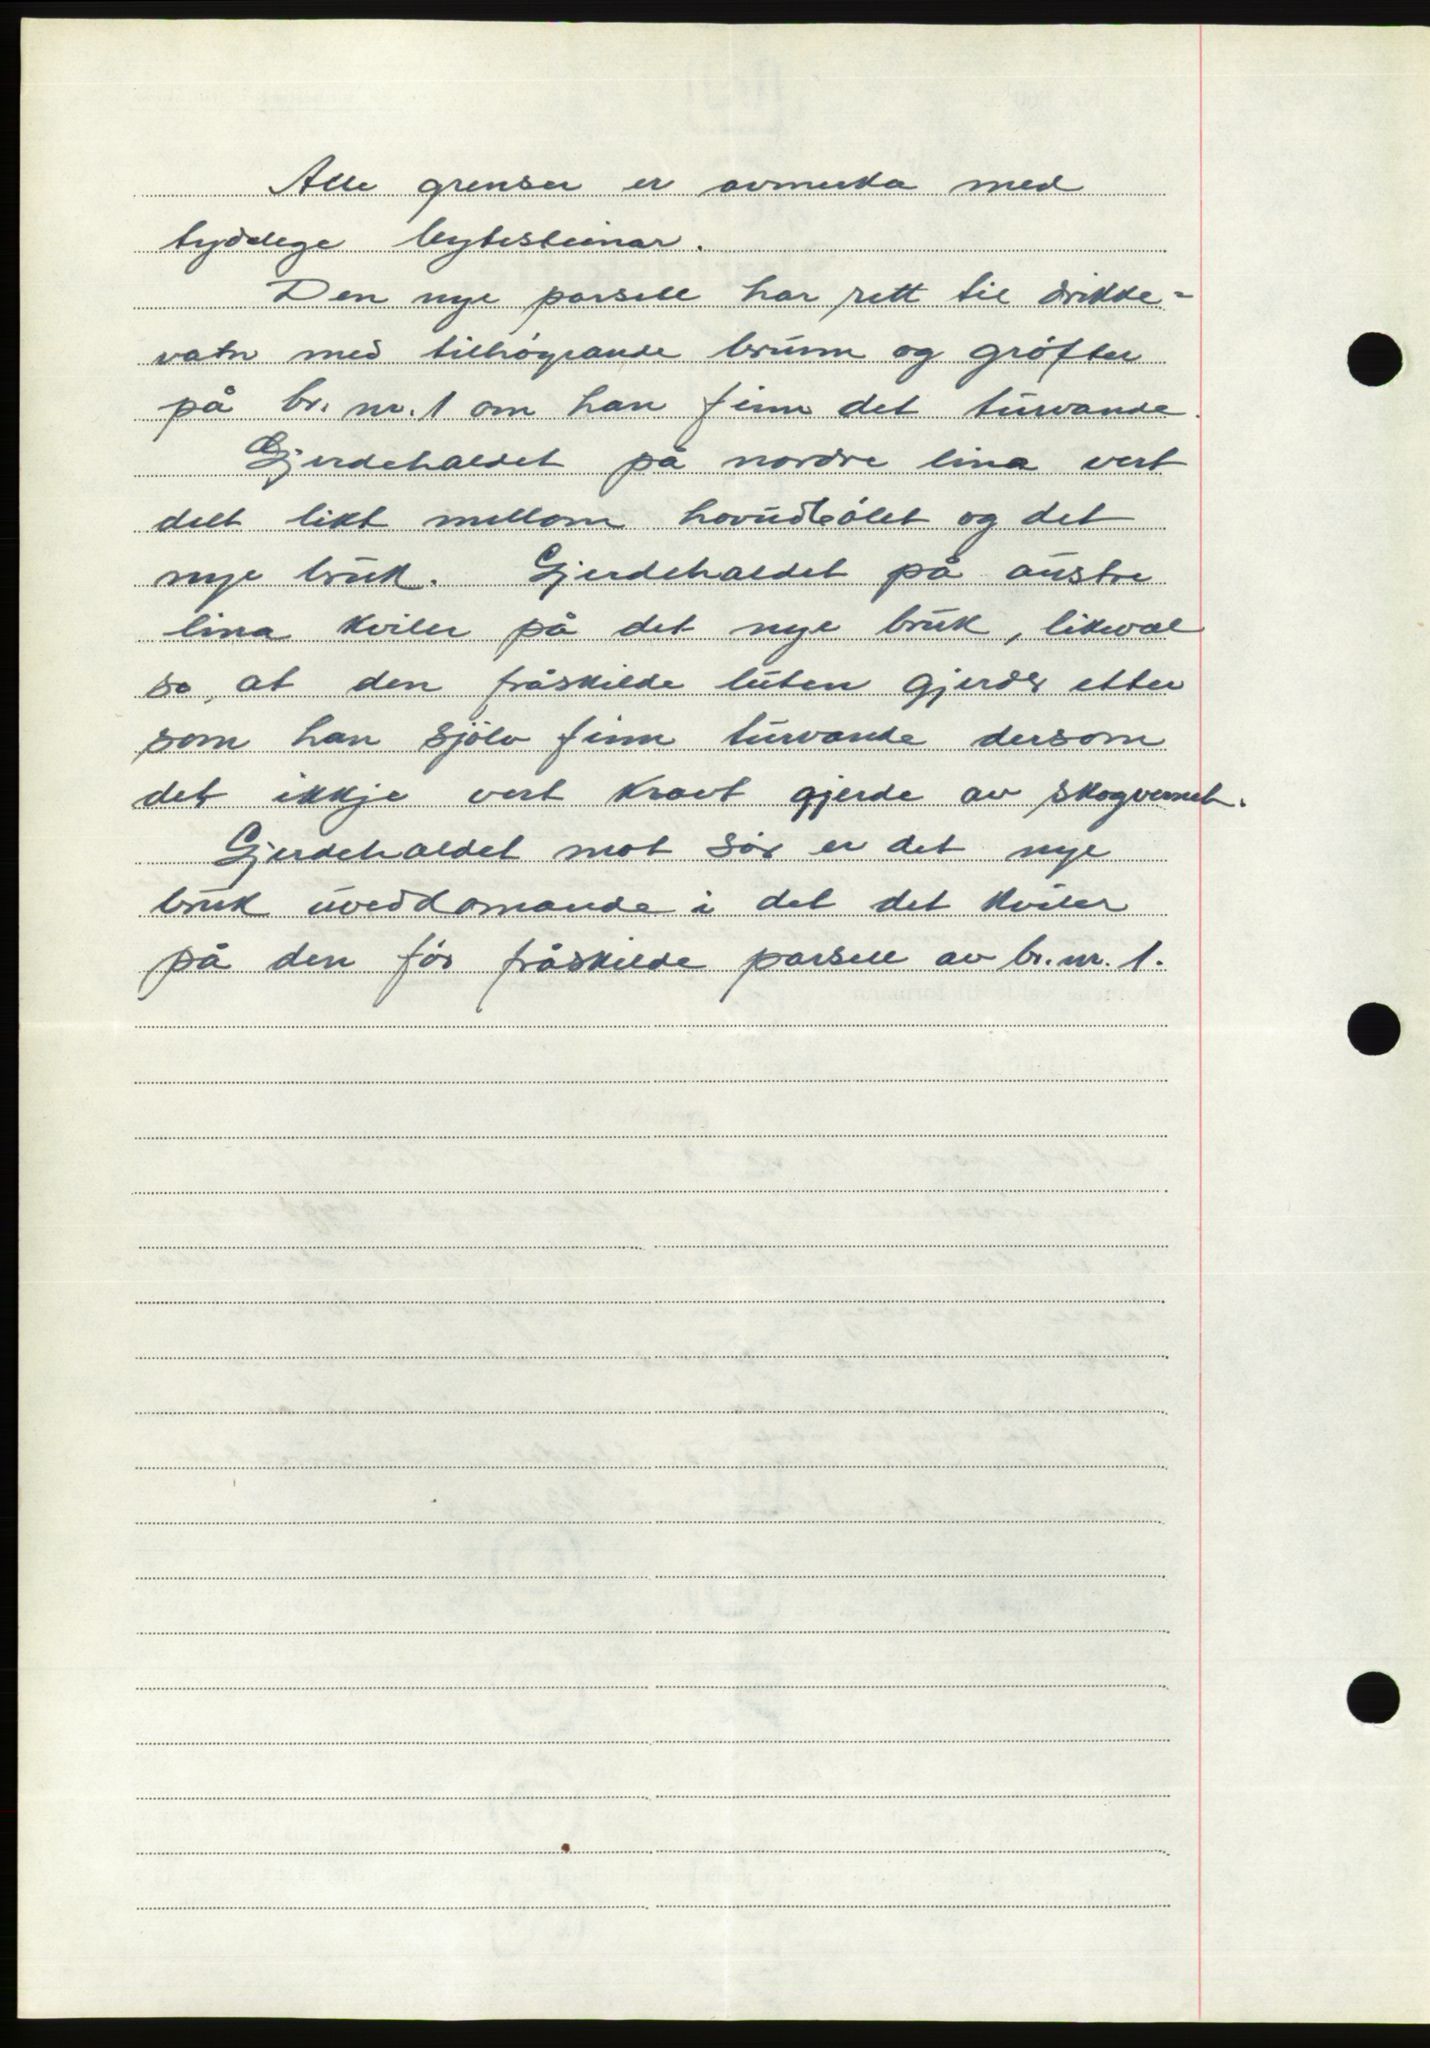 Alle grenser er avmerka med
tydelege bytesteinar.
Den nye parsell har rett til drikke=
vatn med tilhøyrande brunn og grøfter
på br. nr. 1 om han finn det turvande.
Gjerdehaldet på nordre lina vert
delt likt mellom hovudbølet og det
nye bruk. Gjerdehaldet på austre
lina kviler på det nye bruk, likevæl
so, at den fråskilde luten gjerder etter
som han sjølv finn turvande dersom
det ikkje vert kravt gjerde av skogvernet.
Gjerdehaldet mot sør er det nye
bruk uvedkomande i det det kviler
på den før fråskilde parsell av br. nr. 1.